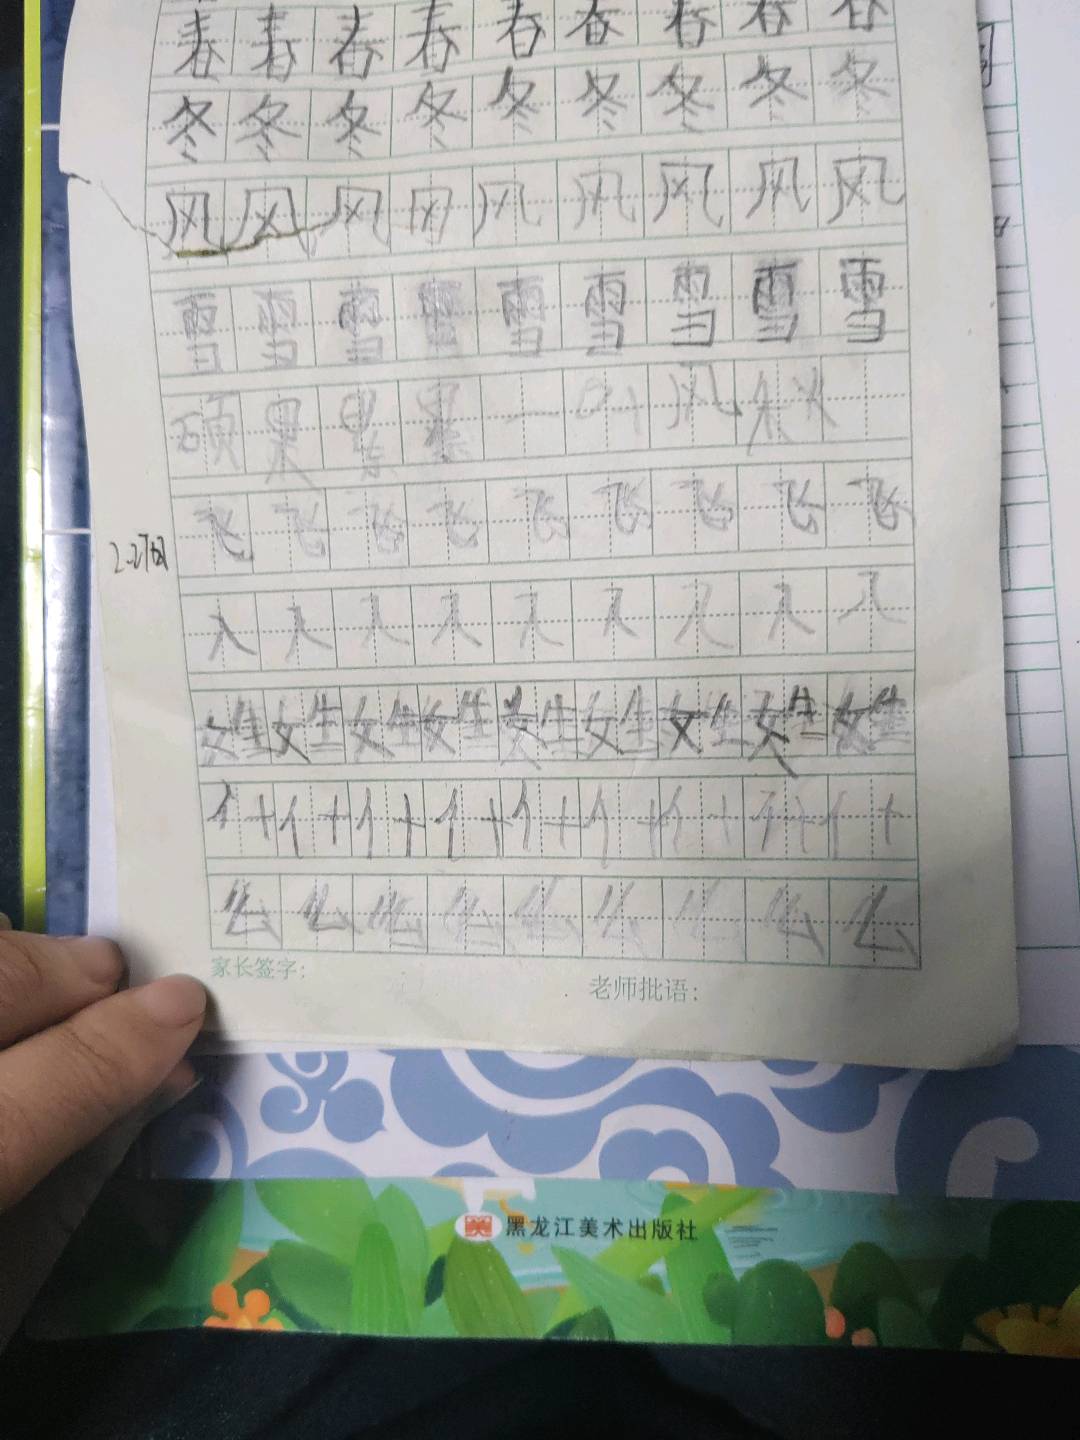 春 春 春 春 春 春 春 春 春
冬 冬 冬 冬 冬 冬 冬 冬 冬
风 风 风 风 风 风 风 风 风
雪 雪 雪 雪 雪 雪 雪 雪 雪
硕 果 累 累 一 叶 风 秋
飞 飞 飞 飞 飞 飞 飞 飞 飞
2.27日
入 入 入 入 入 入 入 入 入
姓 姓 姓 姓 姓 姓 姓 姓 姓
什 什 什 什 什 什 什 什 什
么 么 么 么 么 么 么 么 么
家长签字:
老师批语:
黑龙江美术出版社